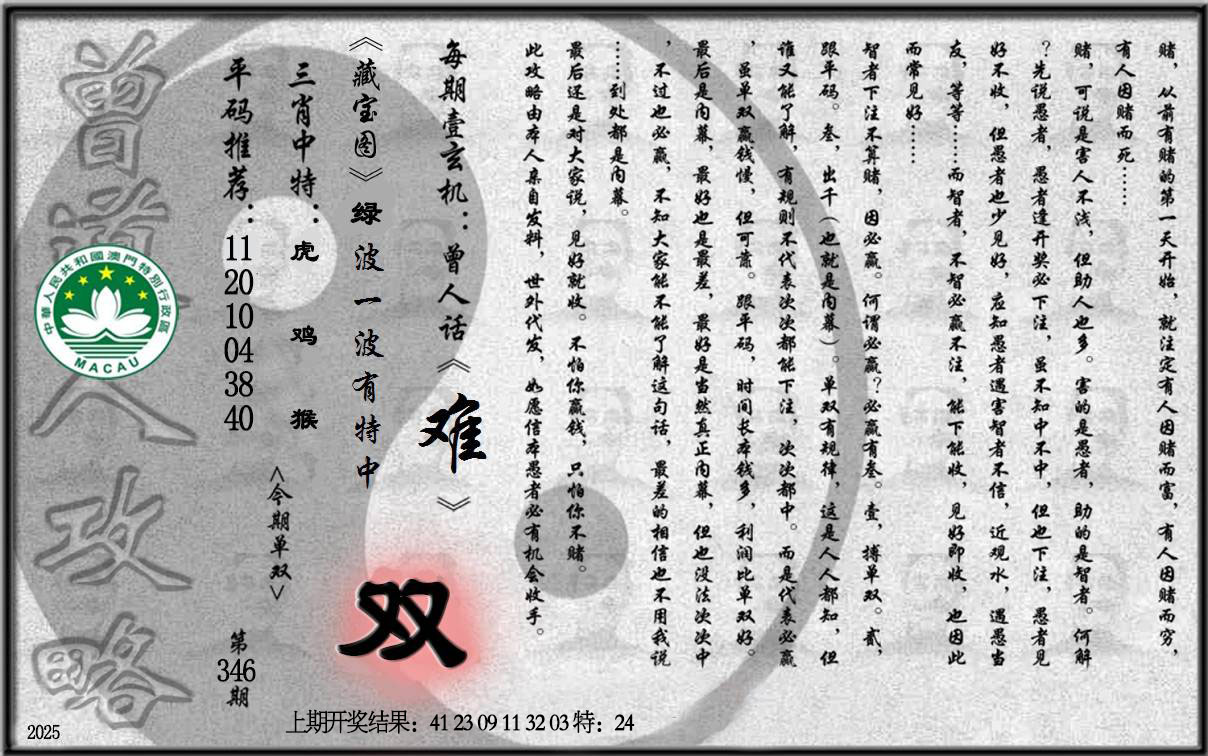 赌，从前有赌的第一天开始，就注定有人因赌而富，有人因赌而穷，
有人因赌而死……
赌，可说是害人不浅，但助人也多。害的是愚者，助的是智者。何解
？先说愚者，愚者逢开奖必下注，虽不知中不中，但也下注，愚者见
好不收，但愚者也少见好，应知愚者遇害智者不信，近观水，遇愚当
友，等等……而智者，不智必赢不注，能下能收，见好即收，也因此
而常见好……
智者下注不算赌，因必赢。何谓必赢？必赢有叁。壹，搏单双。贰，
跟平码。叁，出千（也就是内幕）。单双有规律，这是人人都知，但
谁又能了解，有规则不代表次次都能下注，次次都中。而是代表必赢
，虽单双赢钱慢，但可靠。跟平码，时间长本钱多，利润比单双好。
最后是内幕，最好也是最差，最好是当然真正内幕，但也没法次次中
，不过也必赢，不知大家能不能了解这句话，最差的相信也不用我说
……到处都是内幕。
最后还是对大家说，见好就收。不怕你赢钱，只怕你不赌。
此攻略由本人亲自发料，世外代发，如愿信本愚者必有机会收手。
每期壹玄机：曾人话《难》
《藏宝图》绿波一波有特中
双
三肖中特：虎 鸡 猴
<今期单双>
平码推荐：11 20 10 04 38 40
第346期
曾道人攻略
中華人民共和國澳門特別行政區
MACAU
上期开奖结果：41 23 09 11 32 03 特：24
2025